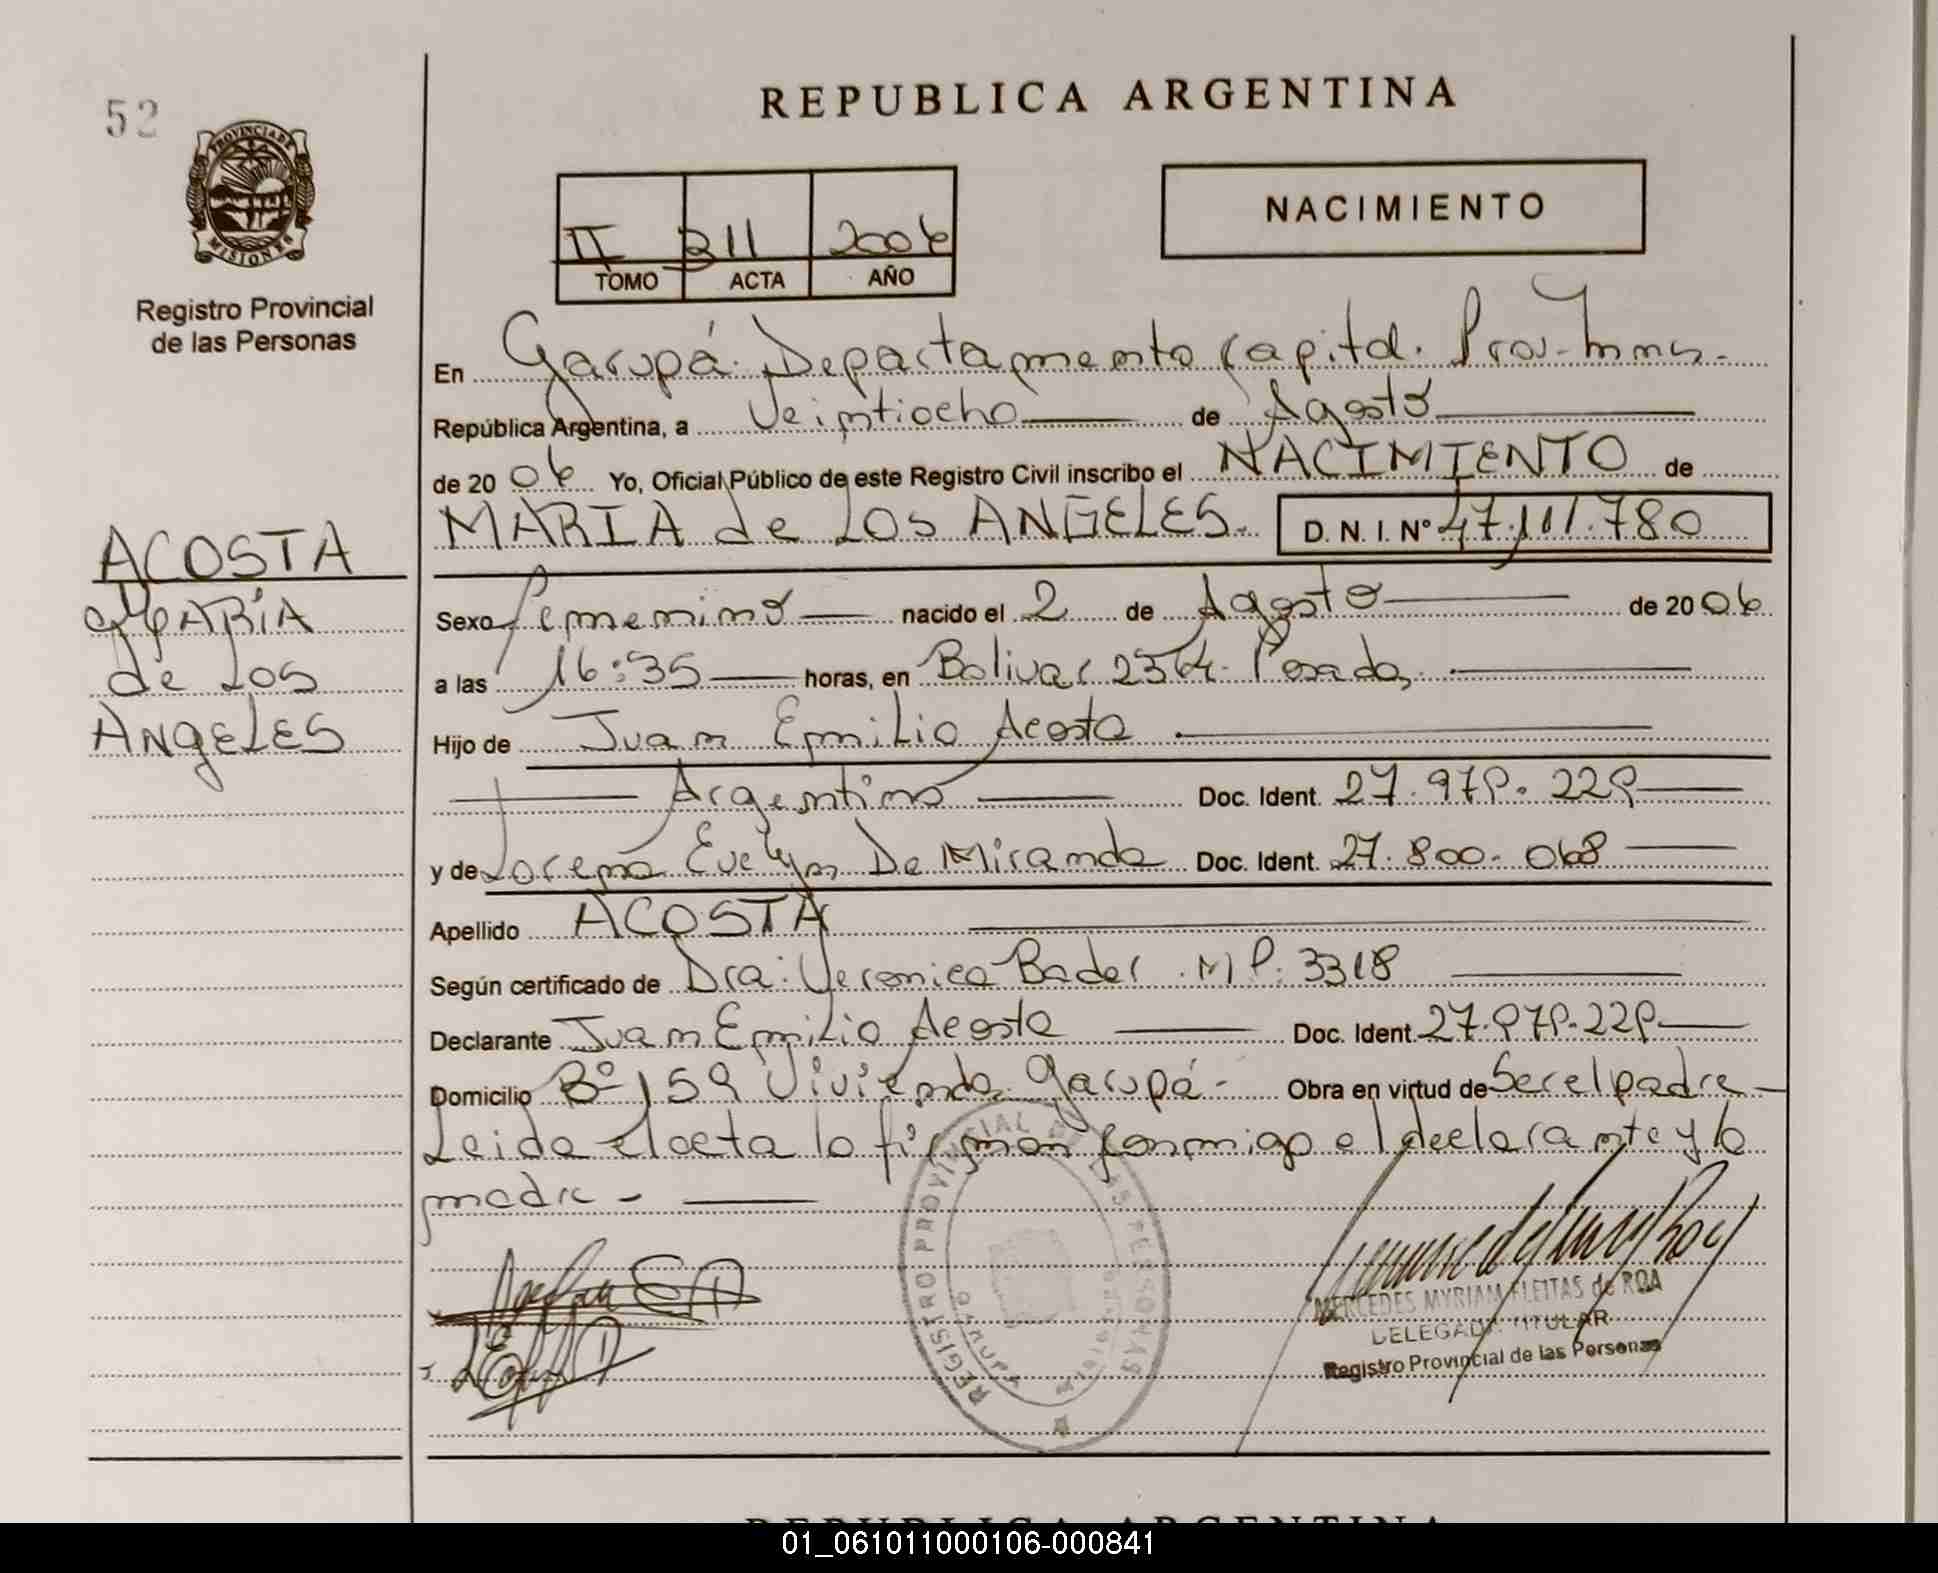 52
REPUBLICA ARGENTINA
PROVINCIA DE
MISIONES
Registro Provincial
de las Personas
NACIMIENTO
II 211 2006
TOMO ACTA AÑO
En Garupá. Departamento Capital. Prov.
República Argentina, a Veintiocho de Agosto
de 20 06 Yo, Oficial Público de este Registro Civil inscribo el NACIMIENTO de
MARIA de LOS ANGELES. D. N. I. Nº 47.111.780
ACOSTA
MARÍA
de LOS
ANgELES
Sexo femenino nacido el 2 de Agosto de 20 06
a las 16:35 horas, en Bolivar 2364. Posadas
Hijo de Juan Emilio Acosta
Argentino Doc. Ident. 27.979.229
y de Lorena Evelyn De Miranda Doc. Ident. 27.800.068
Apellido ACOSTA
Según certificado de Dra: Veronica Bader. M P: 3318
Declarante Juan Emilio Acosta Doc. Ident. 27.979.229
Domicilio Bº 159 Viviendas Garupá- Obra en virtud de Ser el padre
Leida el acta la firman conmigo el declarante y la
madre -
REGISTRO PROVINCIAL DE LAS PERSONAS
MERCEDES MYRIAM FLEITAS de ROA
DELEGADA TITULAR
Registro Provincial de las Personas
REPUBLICA ARGENTINA
01_061011000106-000841